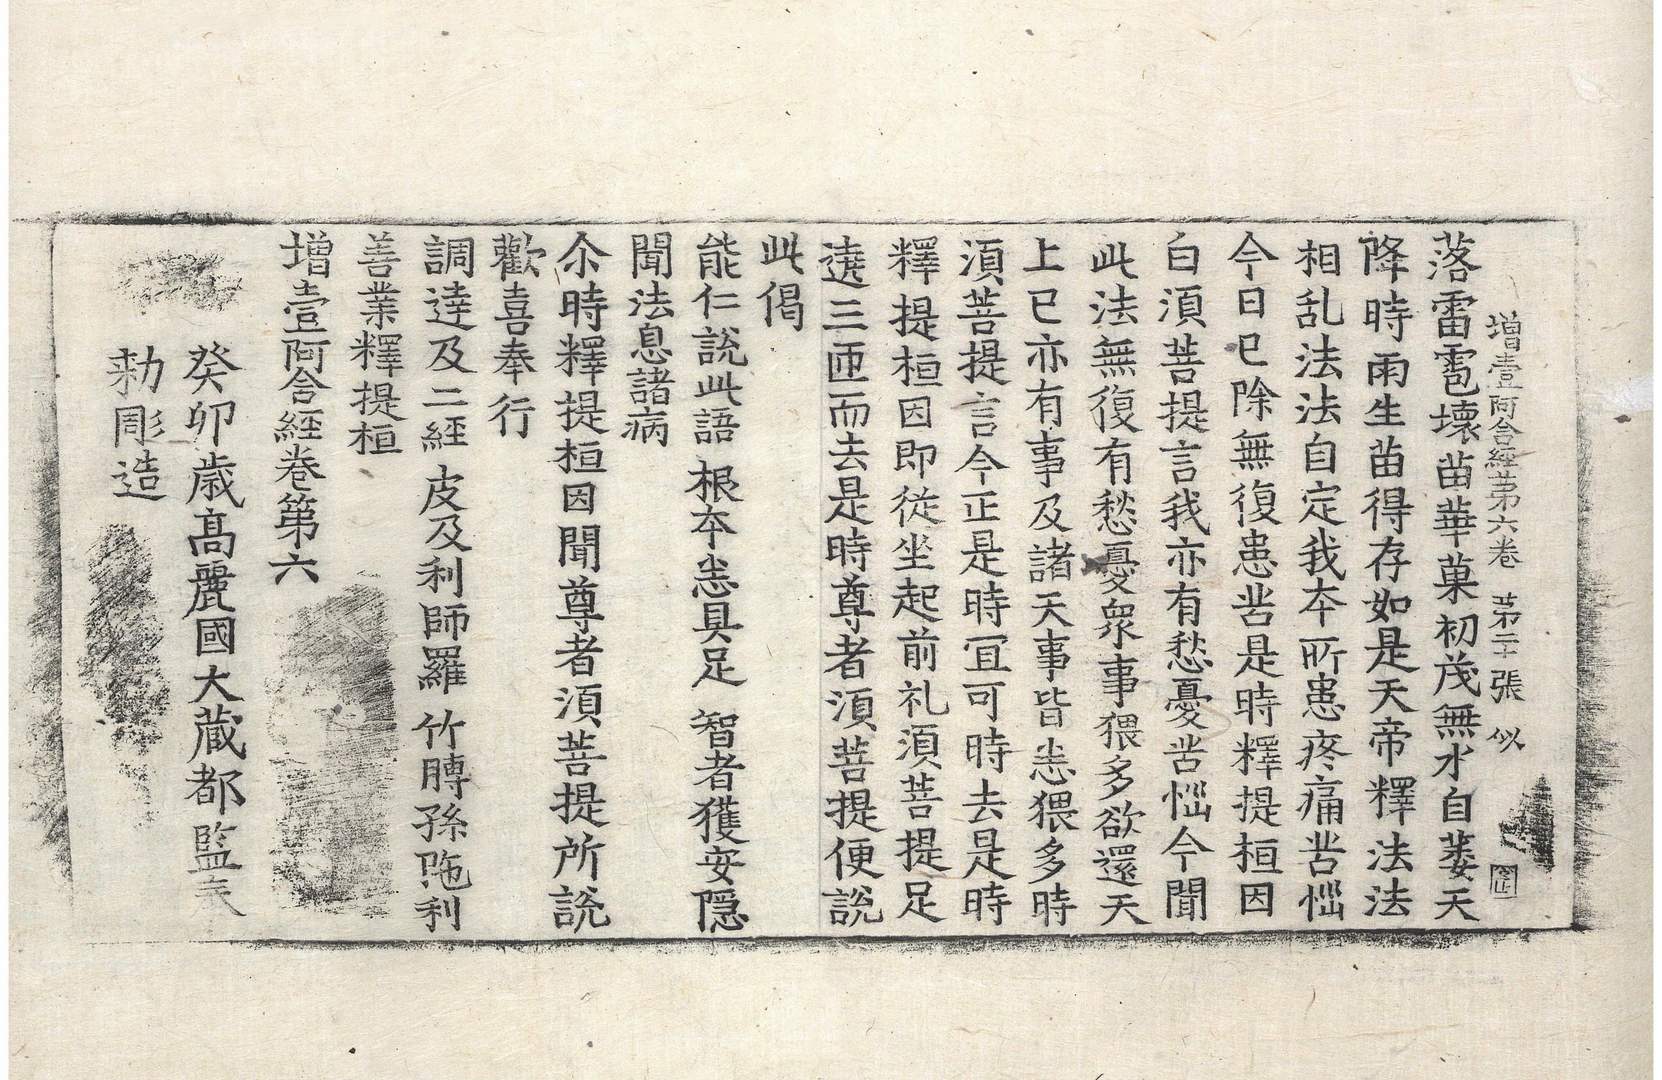 增壹阿含經苐六卷 苐二十張 似
落雷雹壞苗華菓初茂無水自萎天
降時雨生苗得存如是天帝釋法法
相乱法法自定我本所患疼痛苦惱
今日已除無復患苦是時釋提桓因
白湏菩提言我亦有愁憂苦惱今聞
此法無復有愁憂衆事猥多欲還天
上已亦有事及諸天事皆悉猥多時
湏菩提言今正是時冝可時去是時
釋提桓因即從坐起前礼湏菩提足
遶三匝而去是時尊者湏菩提便說
此偈
能仁說此語 根本悉具足 智者獲安隠
聞法息諸病
尒時釋提桓因聞尊者湏菩提所說
歡喜奉行
調達及二經 皮及利師羅 竹膞孫陁利
善業釋提桓
增壹阿含經卷第六
癸卯歳髙麗國大藏都監奉
勑彫造